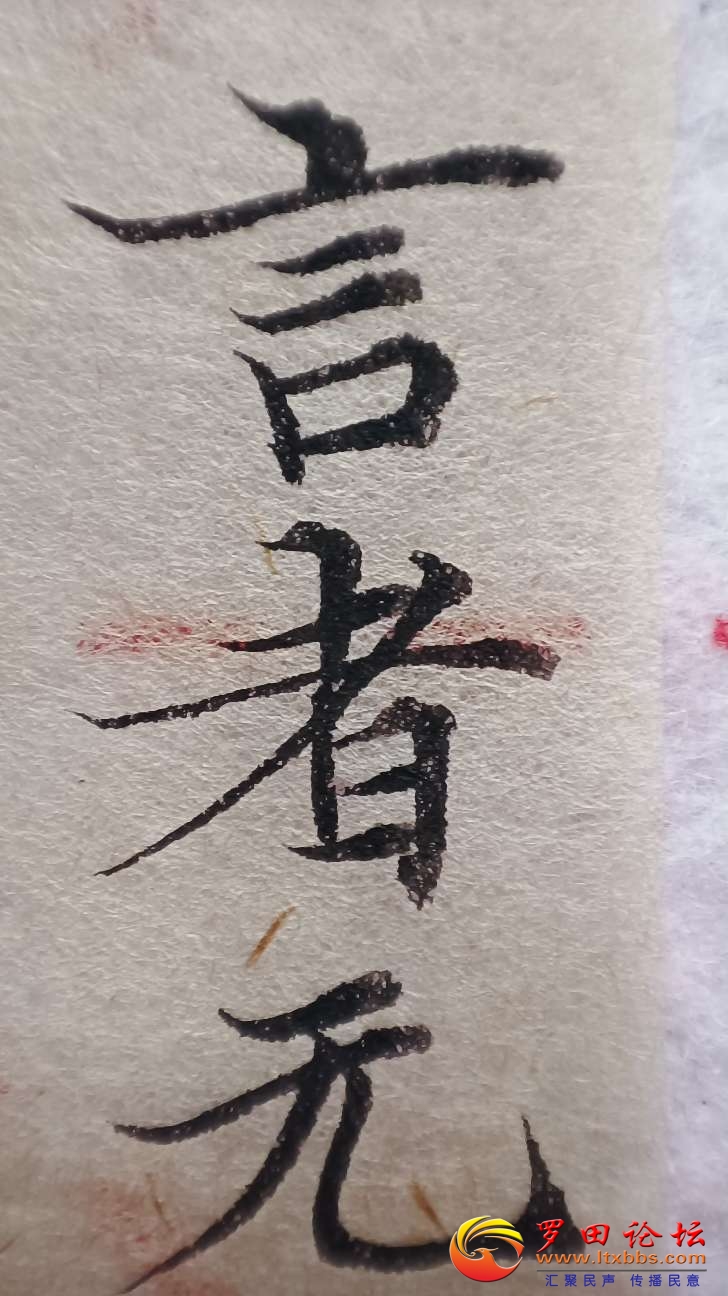 言者无
罗田论坛
www.ltxbbs.com
汇聚民声 传播民意